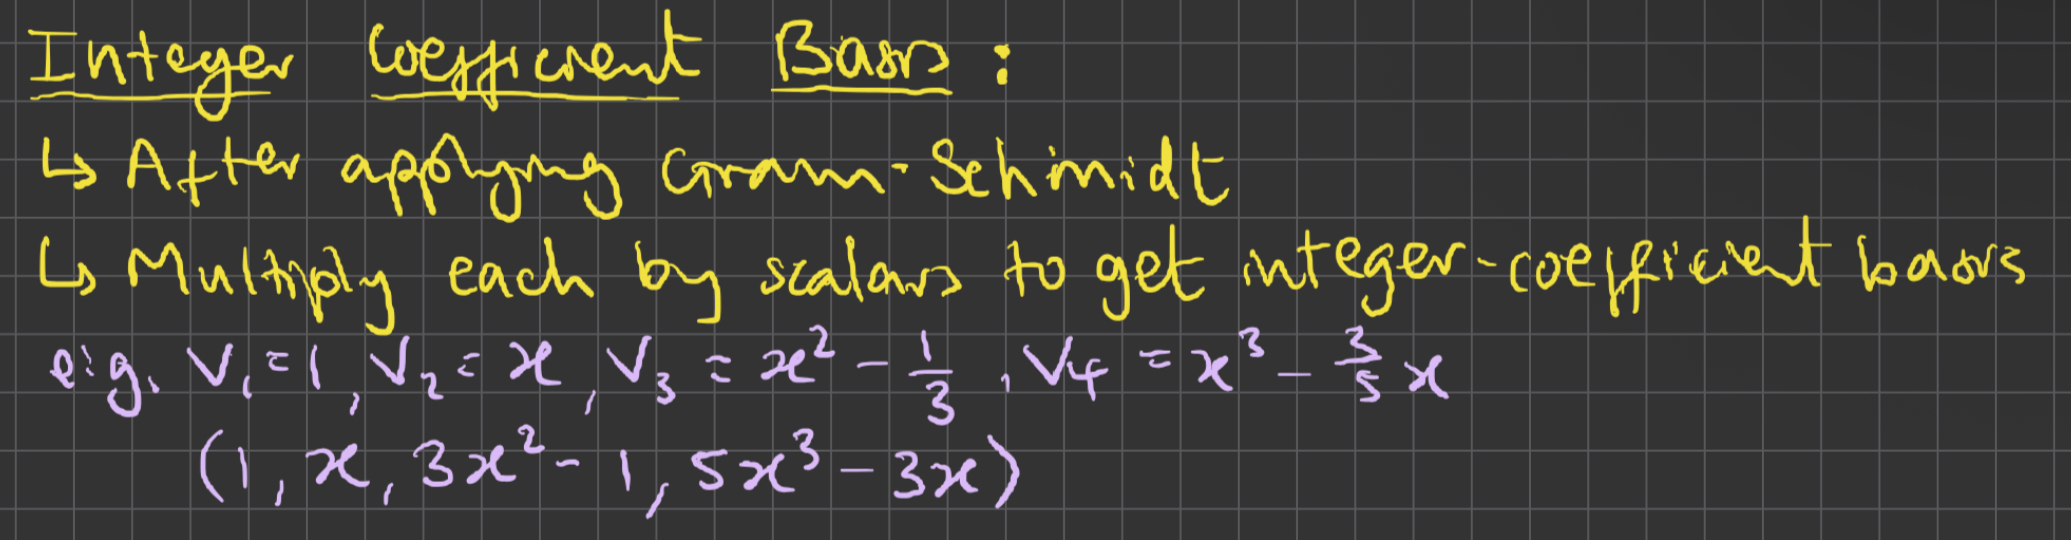 Integer Coefficient Basis :
↳ After applying Gram-Schmidt
↳ Multiply each by scalars to get integer-coefficient basis
e.g. V₁ = 1, V₂ = x, V₃ = x² - 1/3, V₄ = x³ - 3/5 x
(1, x, 3x² - 1, 5x³ - 3x)